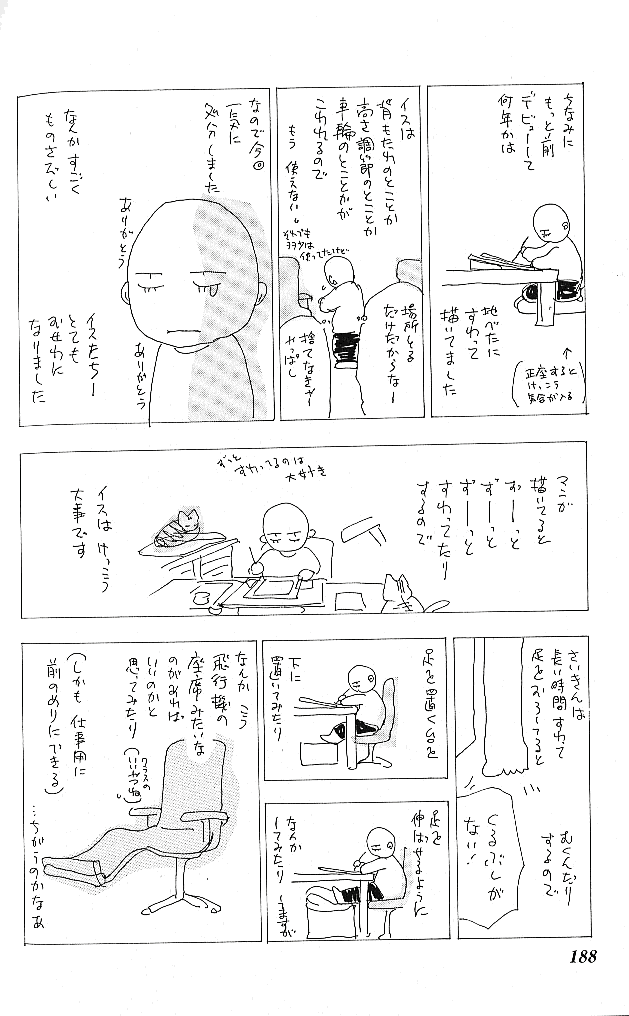 ちなみに
もっと前
デビューして
何年かは
地べたに
すわって
描いてました
↑
(正座すると
けっこう
気合が入る)
イスは
背もたれのとことか
高さ調節のとことか
車輪のとことかが
こわれるので
もう使えない。
それでも
ヨヨクは
使ってたけど
場所とる
だけだからなー
捨てなきゃー
やっぱし
なので今回
一気に
処分しました
なんかすごく
ものさびしい
ありがとう
ありがとう
イスたちー
とても
おせわに
なりました
マンガ
描いてると
ずーっと
ずーっと
ずーっと
すわってたり
するので
ずっと
すわってるのは
大好き
イスはけっこう
大事です
さいきんは
長い時間すわて
足をおろしてると
むくんだり
するので
くるぶしが
ない!
足を置く台を
下に
置いてみたり
足を
伸ばせるように
なんか
してみたりしますが
なんかこう
飛行機の
座席みたいな
のがあれば
いいのかと
思ってみたり
(クラスの
いいやつね)
(しかも仕事用に
前のめりにできる)
…ちがうのかなあ
188